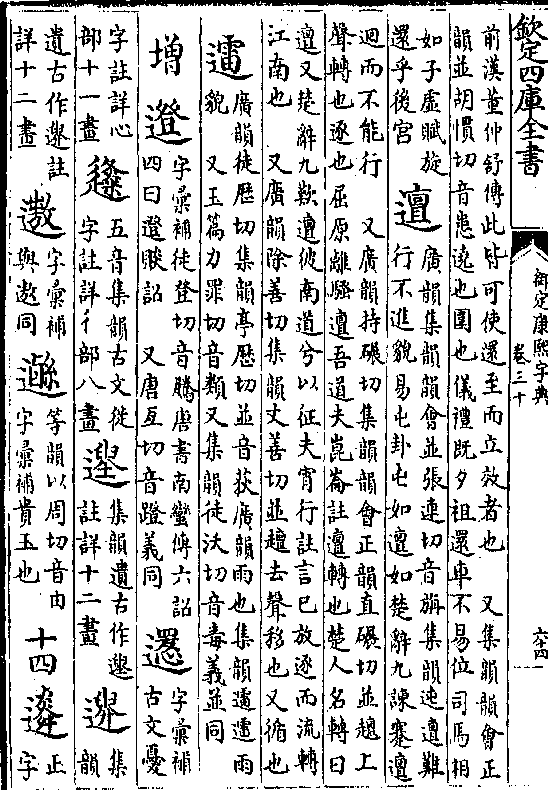 欽定四庫全書
御定康熙字典
卷三十
六四
前漢董仲舒傳此皆可使還至而立效者也 又集韻韻會正
韻並胡慣切音患遶也圍也儀禮既夕祖還車不易位司馬相
如子虛賦旋
還乎後宮
邅
廣韻集韻韻會並張連切音旃集韻迍邅難
行不進貌易屯卦屯如邅如楚辭九諫蹇邅
迴而不能行 又廣韻持碾切集韻韻會正韻直碾切並趲上
聲轉也逐也屈原離騷邅吾道夫崑崙註邅轉也楚人名轉曰
邅又楚辭九歎邅彼南道兮以征夫宵行註言已放逐而流轉
江南也 又廣韻除善切集韻丈善切並趲去聲移也又循也
䨓
廣韻徒歷切集韻亭歷切並音荻廣韻雨也集韻
雨
貌 又玉篇力罪切音類又集韻徒沃切音毒義並同
增
邆
字彙補徒登切音騰唐書南蠻傳六詔
四曰邆睒詔 又唐亙切音蹬義同
字彙補
古文憂
字註詳心
部十一畫
五音集韻古文從
字註詳彳部八畫
集韻遺古作
註詳十二畫
集韻
遺古作
註
詳十二畫
字彙補
與遨同
等韻以周切音由
字彙補貴玉也
十四
正
字